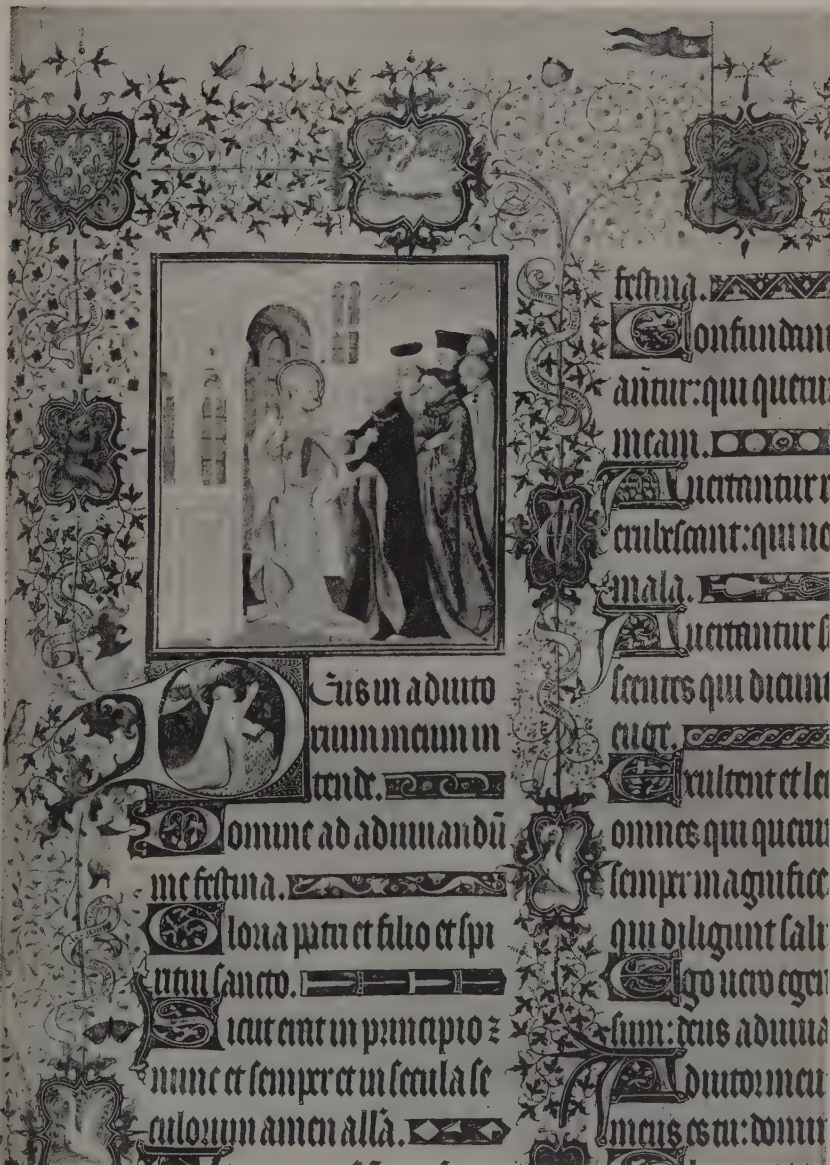 Deus in adiuto
rium meum in
tende.
Domine ad adiuuandū
me festina.
Gloria patri et filio et spi
ritui sancto.
Sicut erat in principio ⁊
nunc et semper et in secula se
culorum amen allā.
festina.
Confundant
antur: qui querun
meam.
Auertantur r
erubescant: qui uo
mala.
Auertantur s
scentes qui dicunt
euge.
Exultent et let
omnes qui querun
semper magnificē
qui diligunt salu
Ego uero egen
sum: deus adiuua
Adiutor meu
meus es tu: domin